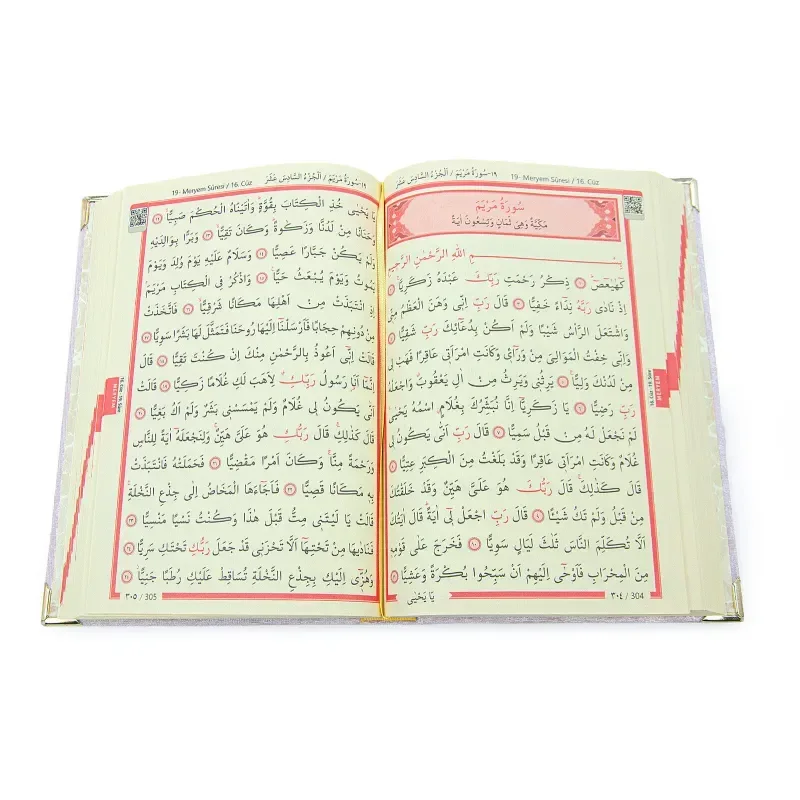 19- Meryem Sûresi / 16. Cüz ١٩-سُورَةُ مَرْيَمَ / اَلْجُزْءُ السَّادِسَ عَشَرَ
سُورَةُ مَرْيَمَ
مَكِّيَّةٌ وَهِىَ ثَمَانٍ وَتِسْعُونَ اٰيَةً
بِسْمِ اللّٰهِ الرَّحْمٰنِ الرَّحِيمِ
كٓهٰيٰعٓصٓ ﴿١﴾ ذِكْرُ رَحْمَتِ رَبِّكَ عَبْدَهُ زَكَرِيَّا ﴿٢﴾
اِذْ نَادٰى رَبَّهُ نِدَٓاءً خَفِيًّا ﴿٣﴾ قَالَ رَبِّ اِنّٖى وَهَنَ الْعَظْمُ مِنّٖى
وَاشْتَعَلَ الرَّاْسُ شَيْبًا وَلَمْ اَكُنْ بِدُعَٓائِكَ رَبِّ شَقِيًّا ﴿٤﴾
وَاِنّٖى خِفْتُ الْمَوَالِىَ مِنْ وَرَٓاءٖى وَكَانَتِ امْرَاَتٖى عَاقِرًا فَهَبْ لٖى
مِنْ لَدُنْكَ وَلِيًّا ﴿٥﴾ يَرِثُنٖى وَيَرِثُ مِنْ اٰلِ يَعْقُوبَ وَاجْعَلْهُ
رَبِّ رَضِيًّا ﴿٦﴾ يَا زَكَرِيَّٓا اِنَّا نُبَشِّرُكَ بِغُلَامٍ اسْمُهُ يَحْيٰى
لَمْ نَجْعَلْ لَهُ مِنْ قَبْلُ سَمِيًّا ﴿٧﴾ قَالَ رَبِّ اَنّٰى يَكُونُ لٖى
غُلَامٌ وَكَانَتِ امْرَاَتٖى عَاقِرًا وَقَدْ بَلَغْتُ مِنَ الْكِبَرِ عِتِيًّا ﴿٨﴾
قَالَ كَذٰلِكَ قَالَ رَبُّكَ هُوَ عَلَىَّ هَيِّنٌ وَقَدْ خَلَقْتُكَ
مِنْ قَبْلُ وَلَمْ تَكُ شَيْـًٔا ﴿٩﴾ قَالَ رَبِّ اجْعَلْ لٖٓى اٰيَةً قَالَ اٰيَتُكَ
اَلَّا تُكَلِّمَ النَّاسَ ثَلٰثَ لَيَالٍ سَوِيًّا ﴿١٠﴾ فَخَرَجَ عَلٰى قَوْمِهٖ
مِنَ الْمِحْرَابِ فَاَوْحٰٓى اِلَيْهِمْ اَنْ سَبِّحُوا بُكْرَةً وَعَشِيًّا ﴿١١﴾
يَا يَحْيٰى
٣٠٤ / 304
16. Cüz - 19. Sûre
MERYEM
19- Meryem Sûresi / 16. Cüz ١٩-سُورَةُ مَرْيَمَ / اَلْجُزْءُ السَّادِسَ عَشَرَ
يَا يَحْيٰى خُذِ الْكِتَابَ بِقُوَّةٍ وَاٰتَيْنَاهُ الْحُكْمَ صَبِيًّا ﴿١٢﴾
وَحَنَانًا مِنْ لَدُنَّا وَزَكٰوةً وَكَانَ تَقِيًّا ﴿١٣﴾ وَبَرًّا بِوَالِدَيْهِ
وَلَمْ يَكُنْ جَبَّارًا عَصِيًّا ﴿١٤﴾ وَسَلَامٌ عَلَيْهِ يَوْمَ وُلِدَ وَيَوْمَ
يَمُوتُ وَيَوْمَ يُبْعَثُ حَيًّا ﴿١٥﴾ وَاذْكُرْ فِى الْكِتَابِ مَرْيَمَ
اِذِ انْتَبَذَتْ مِنْ اَهْلِهَا مَكَانًا شَرْقِيًّا ﴿١٦﴾ فَاتَّخَذَتْ
مِنْ دُونِهِمْ حِجَابًا فَاَرْسَلْنَٓا اِلَيْهَا رُوحَنَا فَتَمَثَّلَ لَهَا بَشَرًا سَوِيًّا ﴿١٧﴾
قَالَتْ اِنّٖٓى اَعُوذُ بِالرَّحْمٰنِ مِنْكَ اِنْ كُنْتَ تَقِيًّا ﴿١٨﴾ قَالَ
اِنَّمَٓا اَنَا رَسُولُ رَبِّكِ لِاَهَبَ لَكِ غُلَامًا زَكِيًّا ﴿١٩﴾ قَالَتْ
اَنّٰى يَكُونُ لٖى غُلَامٌ وَلَمْ يَمْسَسْنٖى بَشَرٌ وَلَمْ اَكُ بَغِيًّا ﴿٢٠﴾
قَالَ كَذٰلِكِ قَالَ رَبُّكِ هُوَ عَلَىَّ هَيِّنٌ وَلِنَجْعَلَهُٓ اٰيَةً لِلنَّاسِ
وَرَحْمَةً مِنَّا وَكَانَ اَمْرًا مَقْضِيًّا ﴿٢١﴾ فَحَمَلَتْهُ فَانْتَبَذَتْ
بِهٖ مَكَانًا قَصِيًّا ﴿٢٢﴾ فَاَجَٓاءَهَا الْمَخَاضُ اِلٰى جِذْعِ النَّخْلَةِ
قَالَتْ يَا لَيْتَنٖى مِتُّ قَبْلَ هٰذَا وَكُنْتُ نَسْيًا مَنْسِيًّا ﴿٢٣﴾
فَنَادٰيهَا مِنْ تَحْتِهَٓا اَلَّا تَحْزَنٖى قَدْ جَعَلَ رَبُّكِ تَحْتَكِ سَرِيًّا ﴿٢٤﴾
وَهُزّٖٓى اِلَيْكِ بِجِذْعِ النَّخْلَةِ تُسَاقِطْ عَلَيْكِ رُطَبًا جَنِيًّا ﴿٢٥﴾
٣٠٥ / 305
16. Cüz - 19. Sûre
MERYEM